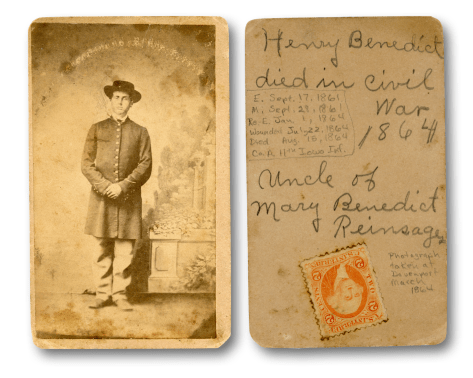 Henry Benedict
died in civil
War
1864
E. Sept. 17, 1861
M. Sept. 23, 1861
Re E. Jan. 1, 1864
Wounded July 22, 1864
Died Aug. 16, 1864
Co. A 11th Iowa Inf.
Uncle of
Mary Benedict
Reinsager
Photograph
taken at
Davenport
March
1864